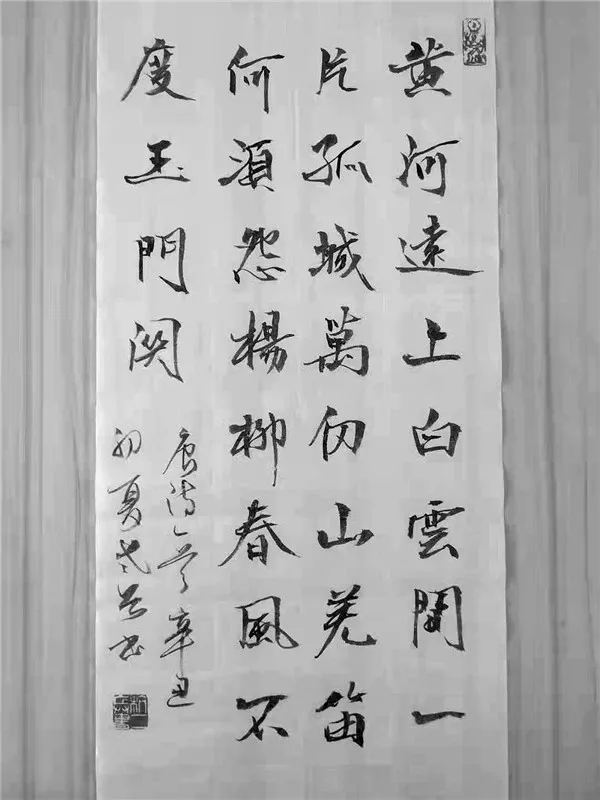 黄河遠上白雲間一
片孤城萬仞山羌笛
何須怨楊柳春風不
度玉門関
唐诗一首辛丑
初夏
书